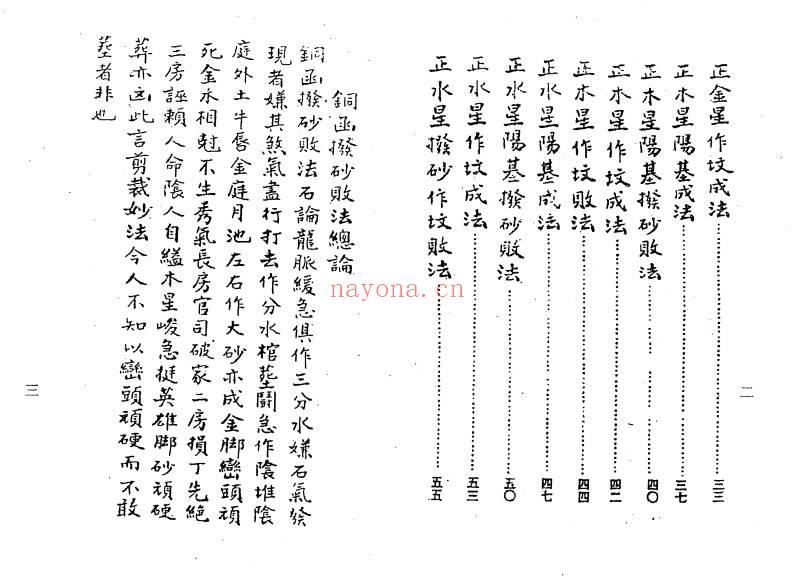 正金星作坟成法……三三
正木星陽基成法……三七
正木星陽基撥砂敗法……四〇
正木星作坟成法……四二
正木星作坟敗法……四四
正水星陽基成法……四七
正水星陽基撥砂敗法……五〇
正水星作坟成法……五三
正水星撥砂作坟敗法……五五
二
銅函撥砂敗法總論
銅函撥砂敗法石論龍脈緩急俱作三分水嫌石氣發
現者嫌其煞氣盡行打去作分水棺塟鬪急作陰堆陰
庭外土牛唇金庭月池左右作大砂亦成金脚巒頭頑
死金水相尅不生秀氣長房官司破家二房損丁先絶
三房誣賴人命陰人自縊木星峻急挺英雄脚砂頑硬
葬亦凶此言剪裁妙法今人不知以巒頭頑硬而不敢
塟者非也
三
nayona.cn